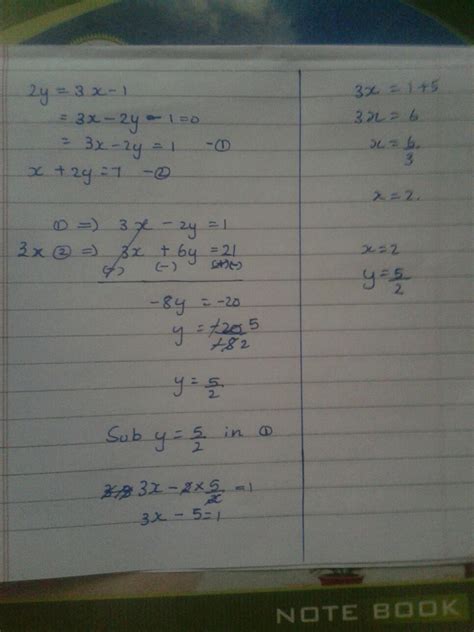 2y = 3x - 1
= 3x - 2y - 1 = 0
= 3x - 2y = 1 - ①
x + 2y = 7 - ②
① => 3x - 2y = 1
3x ② => 3x + 6y = 21
(-) (-) (-)
-8y = -20
y = -20 5
-8 2
y = 5/2
Sub y = 5/2 in ①
3x - 2 × 5/2 = 1
3x - 5 = 1
3x = 1 + 5
3x = 6
x = 6/3
x = 2.
x = 2
y = 5/2
NOTE BOOK